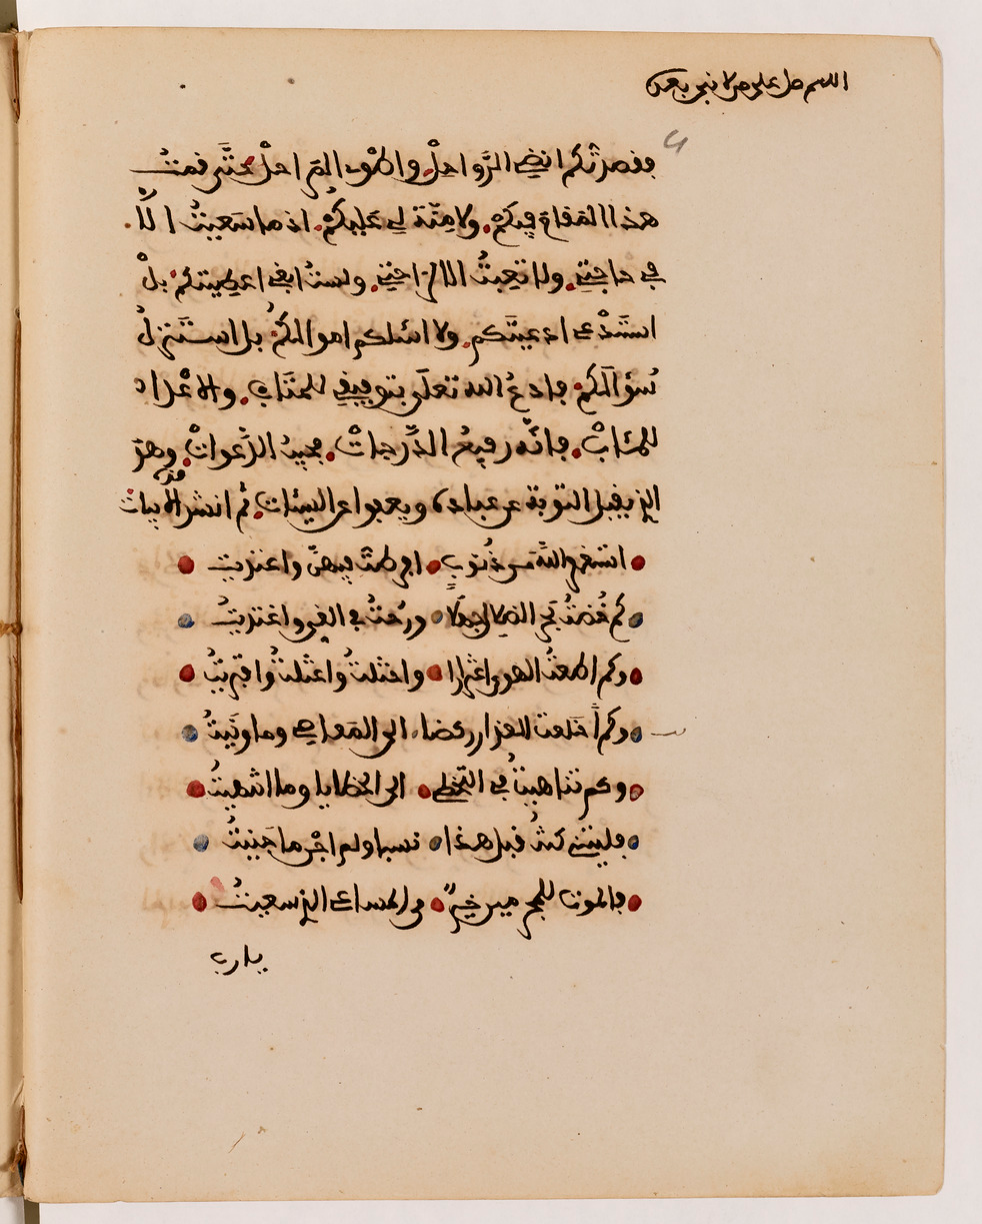 اللهم صل على من لا نبي بعده
فقصدتكم انضي الرَّواحلْ. واطْوِي المَراحلْ حتَّى قمتُ
هذا المقام فيكمْ. ولا مِنّة لي عليكمْ. اذ ما سَعيتُ الَّا
في حاجتي. ولا تعِبتُ الا لراحتي. ولستُ ابغي اعطيتكمْ. بلْ
استَدْعي ادعيتَكم. ولا اسئلكم اموالكمْ. بل استَنزلُ
سُؤالَكمْ. فادعُ الله تعلَى بتوفيقي للمتَابِ. والاعْداد
للمئابْ. فانّه رفيعُ الدَّرجاتْ. مجيبُ الدَّعواتْ. وهوَ
الذي يقبل التوبة عن عباده ويعفوا عن السيئات. ثم انشد الابيات
استغفر اللهَ من ذُنوبٍ افرطتُ فيهنّ واعتديت
كم خُضتُ بحر الضلال جهلًا ورُحتُ في الغي واغتديتُ
وكم اطعتُ الهوى اغترارا واختلتُ واغتلتُ وافتريتُ
وكم خَلعت العذار ركضا الى المَعاصي وما ونَيتُ
وكم تناهيتُ في التخطي الى الخطايا وما انتهيتُ
فليتني كنتُ قبل هذا نسيا ولم اجْن ما جَنيتُ
فالموت للمجرمين خيرٌ من المساعي التي سعيتُ
يارب